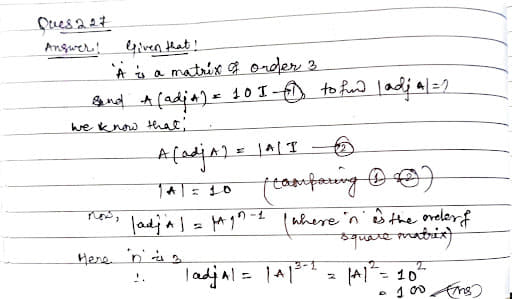 Ques 227
Answer: Given that:
'A' is a matrix of order 3
and A(adj A) = 10 I —① to find |adj A| = ?
we know that;
A(adj A) = |A| I —②
|A| = 10 (comparing ① & ②)
now, |adj A| = |A|^n-1 (where 'n' is the order of
square matrix)
Here 'n' is 3
∴ |adj A| = |A|^3-1 = |A|^2 = 10^2
= 100 (Ans)